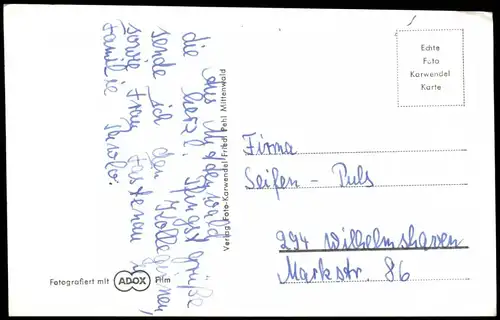 Aus Mittenwald
die herzl. Pfingstgrüße
sende ich den Kolleginnen,
sowie Frau
Familie
Echte
Foto
Karwendel
Karte
Verlag Foto-Karwendel-Friedl Pehl Mittenwald
Firma
Seifen - Puls
294 Wilhelmshaven
Markstr. 86
Fotografiert mit ADOX Film